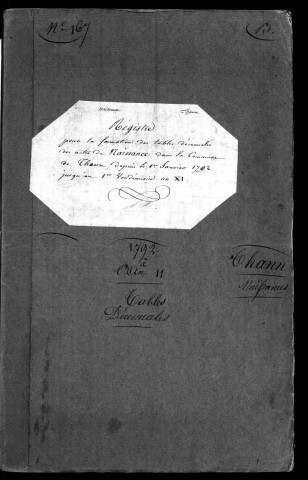 N° 167
B.
Régistre
pour la formation des tables décennales
des actes de Naissance dans la Commune
de Thann depuis le 1er Janvier 1792
jusqu'au 1er Vendémiaire an XI.
1792
à
Thann
Naissances
Tables
Décennales